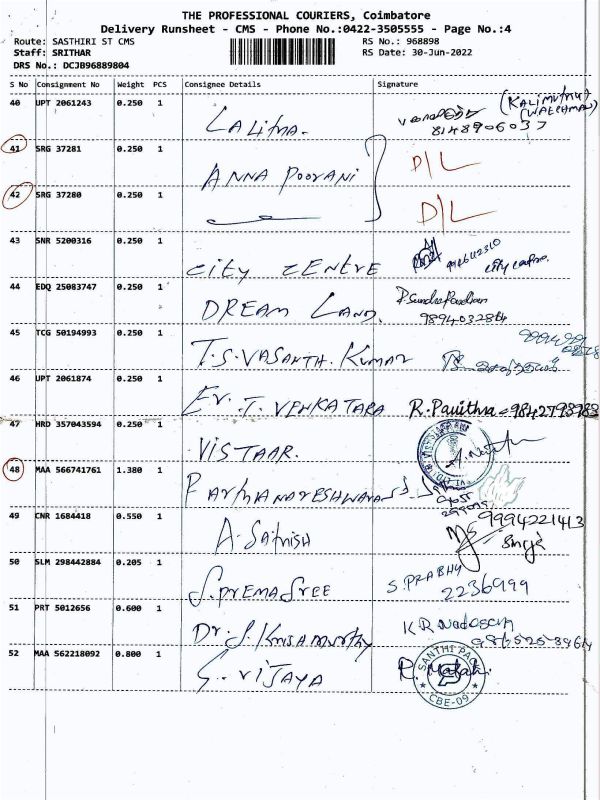 THE PROFESSIONAL COURIERS, Coimbatore
Delivery Runsheet - CMS - Phone No.:0422-3505555 - Page No.:4
Route: SASTHIRI ST CMS RS No.: 968898
Staff: SRITHAR RS Date: 30-Jun-2022
DRS No.: DCJB96889804
S No Consignment No Weight PCS Consignee Details Signature
40 UPT 2061243 0.250 1 Lalitha. (KALIMUTHU)
(WATCHMAN)
8148906037
41 SRG 37281 0.250 1 ANNA POORANI D/L
42 SRG 37280 0.250 1 D/L
43 SNR 5200316 0.250 1 City CENTRE City centre.
44 EDQ 25083747 0.250 1 DREAM LAND.
9894032864
45 TCG 50194993 0.250 1 T.S. VASANTH. KUMAR
46 UPT 2061874 0.250 1 Er. T. VENKATARA R. Pavithra - 9842793983
47 HRD 357043594 0.250 1 VISTAAR.
48 MAA 566741761 1.380 1
49 CNR 1684418 0.550 1 A. Sathish 9994221413
50 SLM 298442884 0.205 1 S. PREMA SREE S. PRABHU
2236999
51 PRT 5012656 0.600 1 K R
52 MAA 562218092 0.800 1 S. VIJAYA
SANTHI
CBE-09